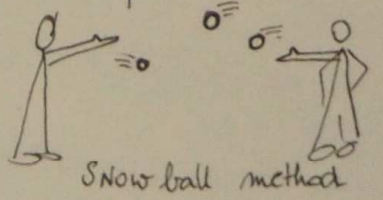 Snow ball method